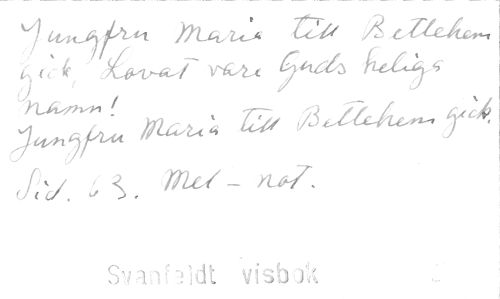 Jungfru Maria till Betlehem
gick, Lovat vare Guds heliga
namn!
Jungfru Maria till Betlehem gick.
Sid. 63. Mel - not.
Svanfeldt visbok